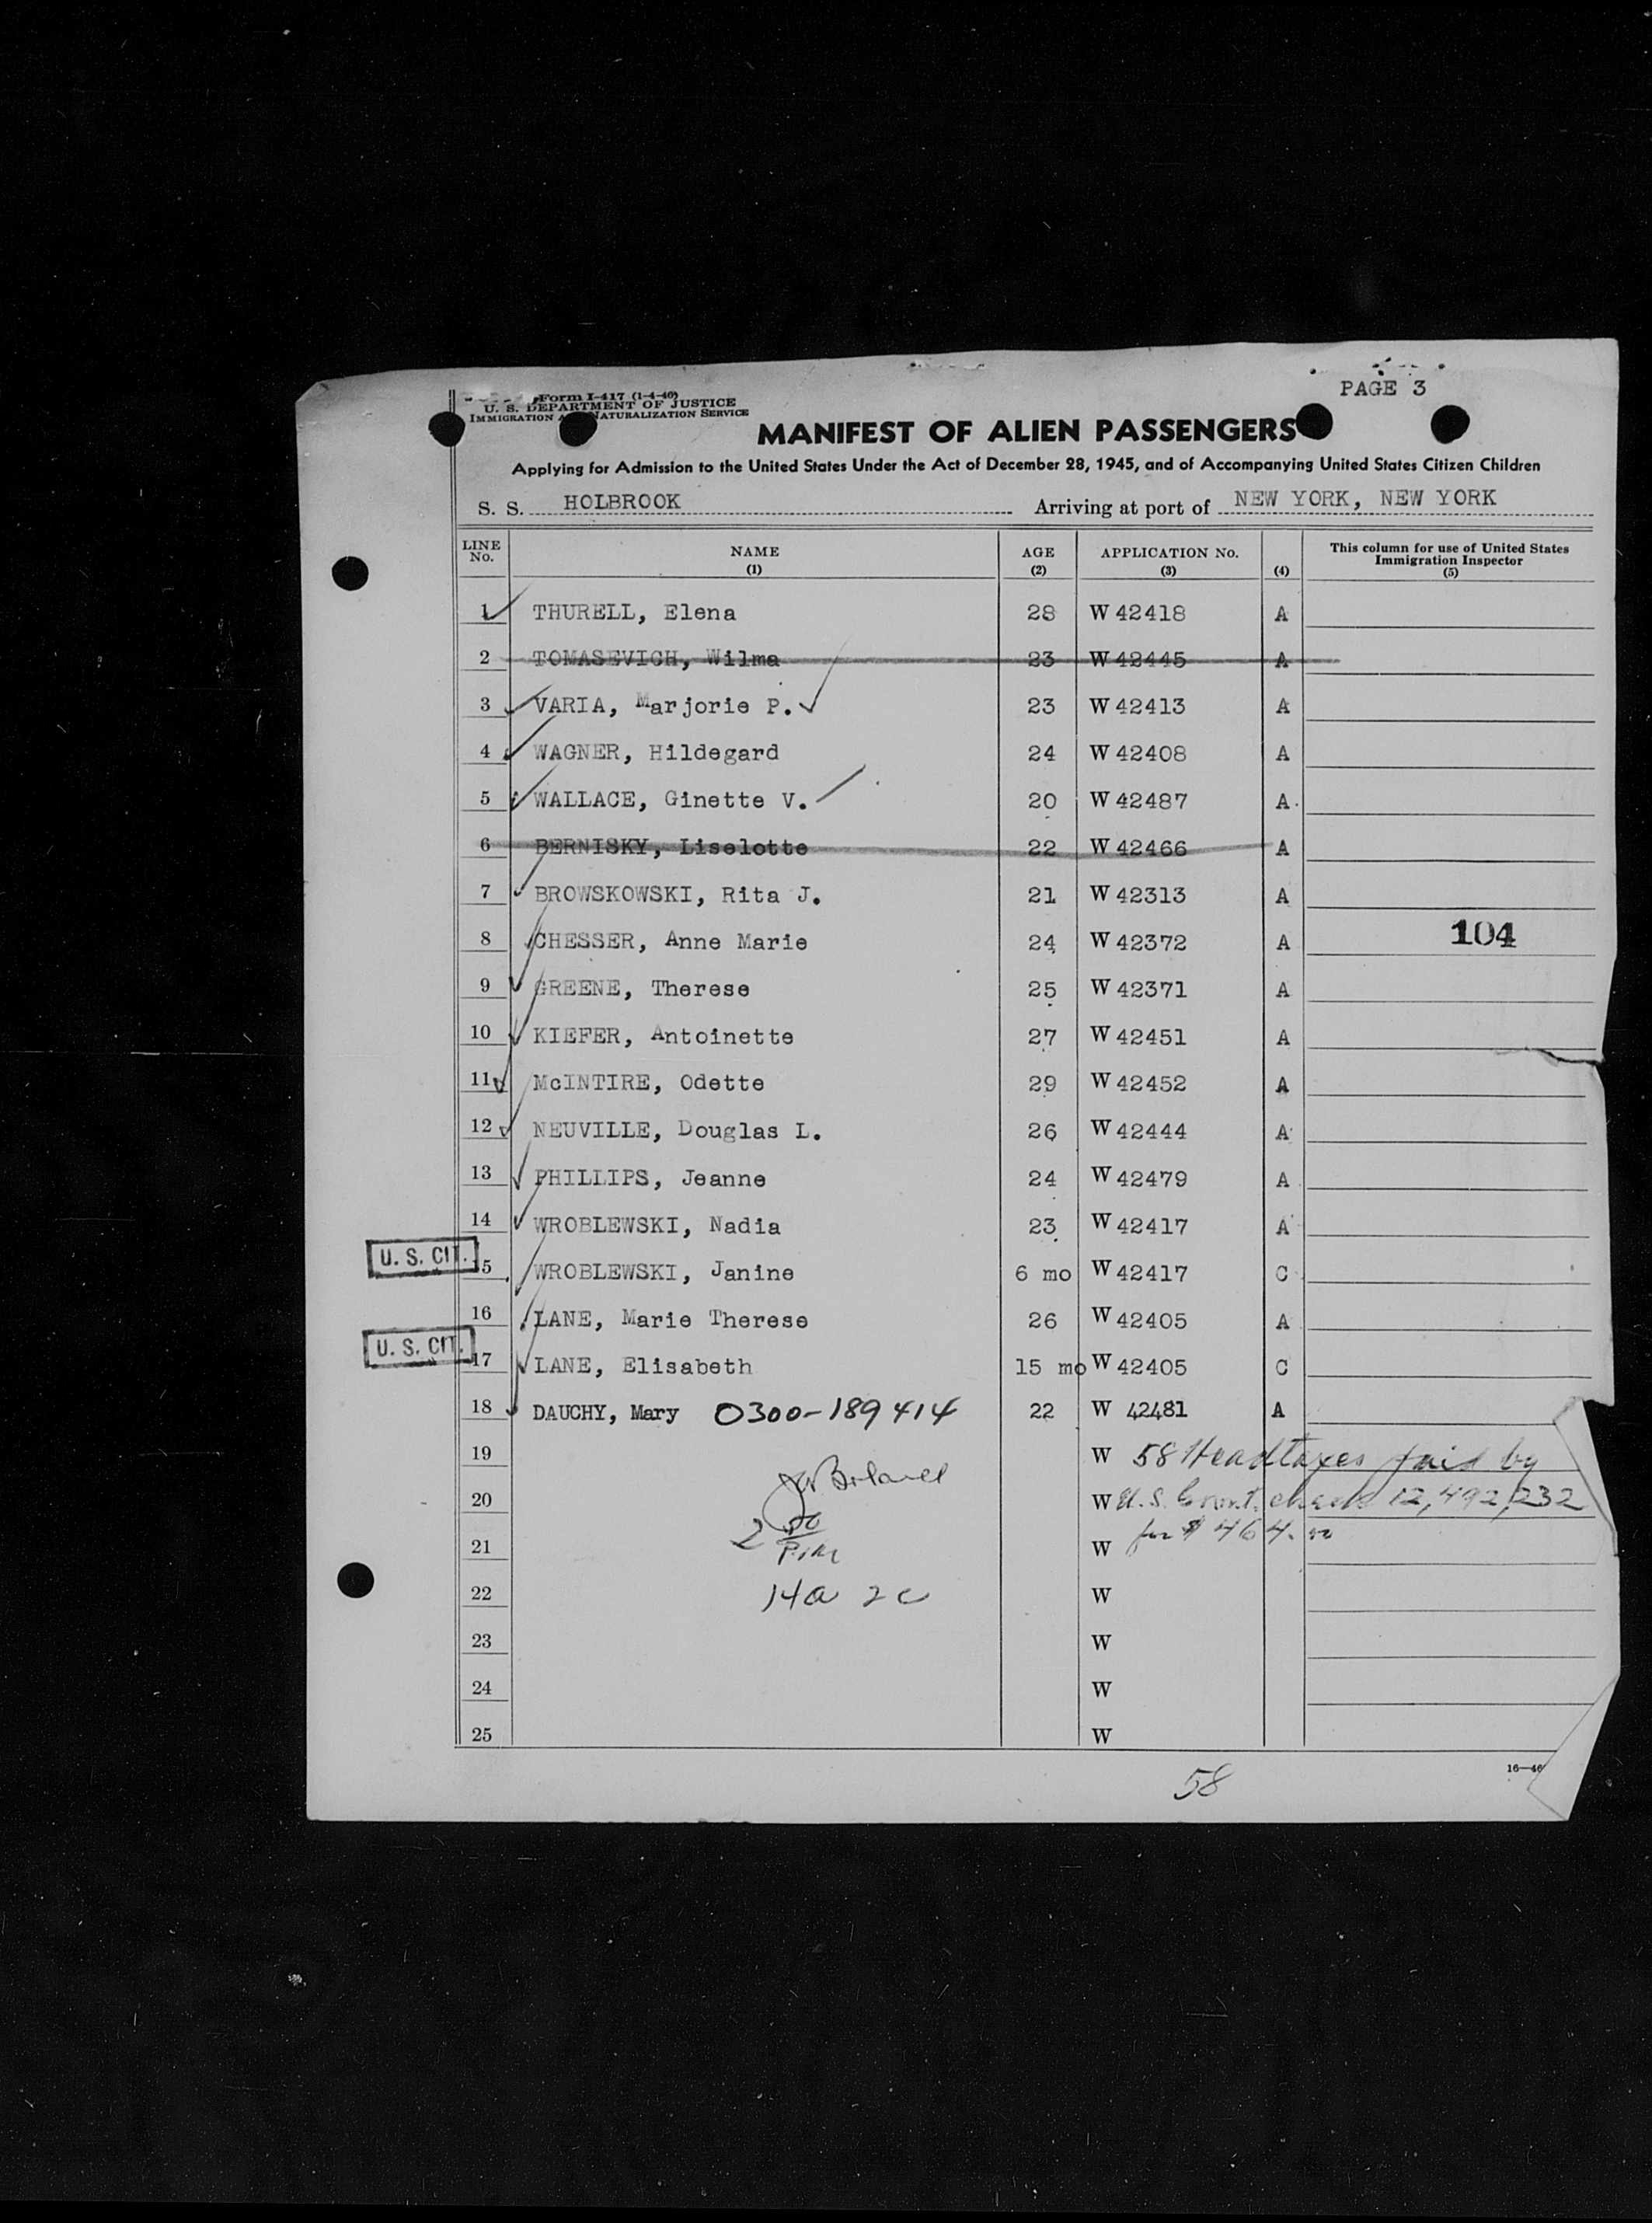 PAGE 3
Form I-417 (1-4-46)
U. S. DEPARTMENT OF JUSTICE
IMMIGRATION NATURALIZATION SERVICE
MANIFEST OF ALIEN PASSENGERS
Applying for Admission to the United States Under the Act of December 28, 1945, and of Accompanying United States Citizen Children
S. S. HOLBROOK Arriving at port of NEW YORK, NEW YORK
LINE No. NAME (1) AGE (2) APPLICATION No. (3) (4) This column for use of United States Immigration Inspector (5)
1 THURELL, Elena 28 W 42418 A
2 TOMASEVICH, Wilma 23 W 42445 A
3 VARIA, Marjorie P. 23 W 42413 A
4 WAGNER, Hildegard 24 W 42408 A
5 WALLACE, Ginette V. 20 W 42487 A
6 BERNISKY, Liselotte 22 W 42466 A
7 BROWSKOWSKI, Rita J. 21 W 42313 A
8 CHESSER, Anne Marie 24 W 42372 A 104
9 GREENE, Therese 25 W 42371 A
10 KIEFER, Antoinette 27 W 42451 A
11 McINTIRE, Odette 29 W 42452 A
12 NEUVILLE, Douglas L. 26 W 42444 A
13 PHILLIPS, Jeanne 24 W 42479 A
14 WROBLEWSKI, Nadia 23 W 42417 A
U. S. CIT. 15 WROBLEWSKI, Janine 6 mo W 42417 C
16 LANE, Marie Therese 26 W 42405 A
U. S. CIT. 17 LANE, Elisabeth 15 mo W 42405 C
18 DAUCHY, Mary 0300-189414 22 W 42481 A
19 W 58 Headtaxes paid by
20 W U.S. Govnt. check 12,492,232
21 2 50 P.M. W for $464.00
22 14a 2c W
23 W
24 W
25 W
58
16—46